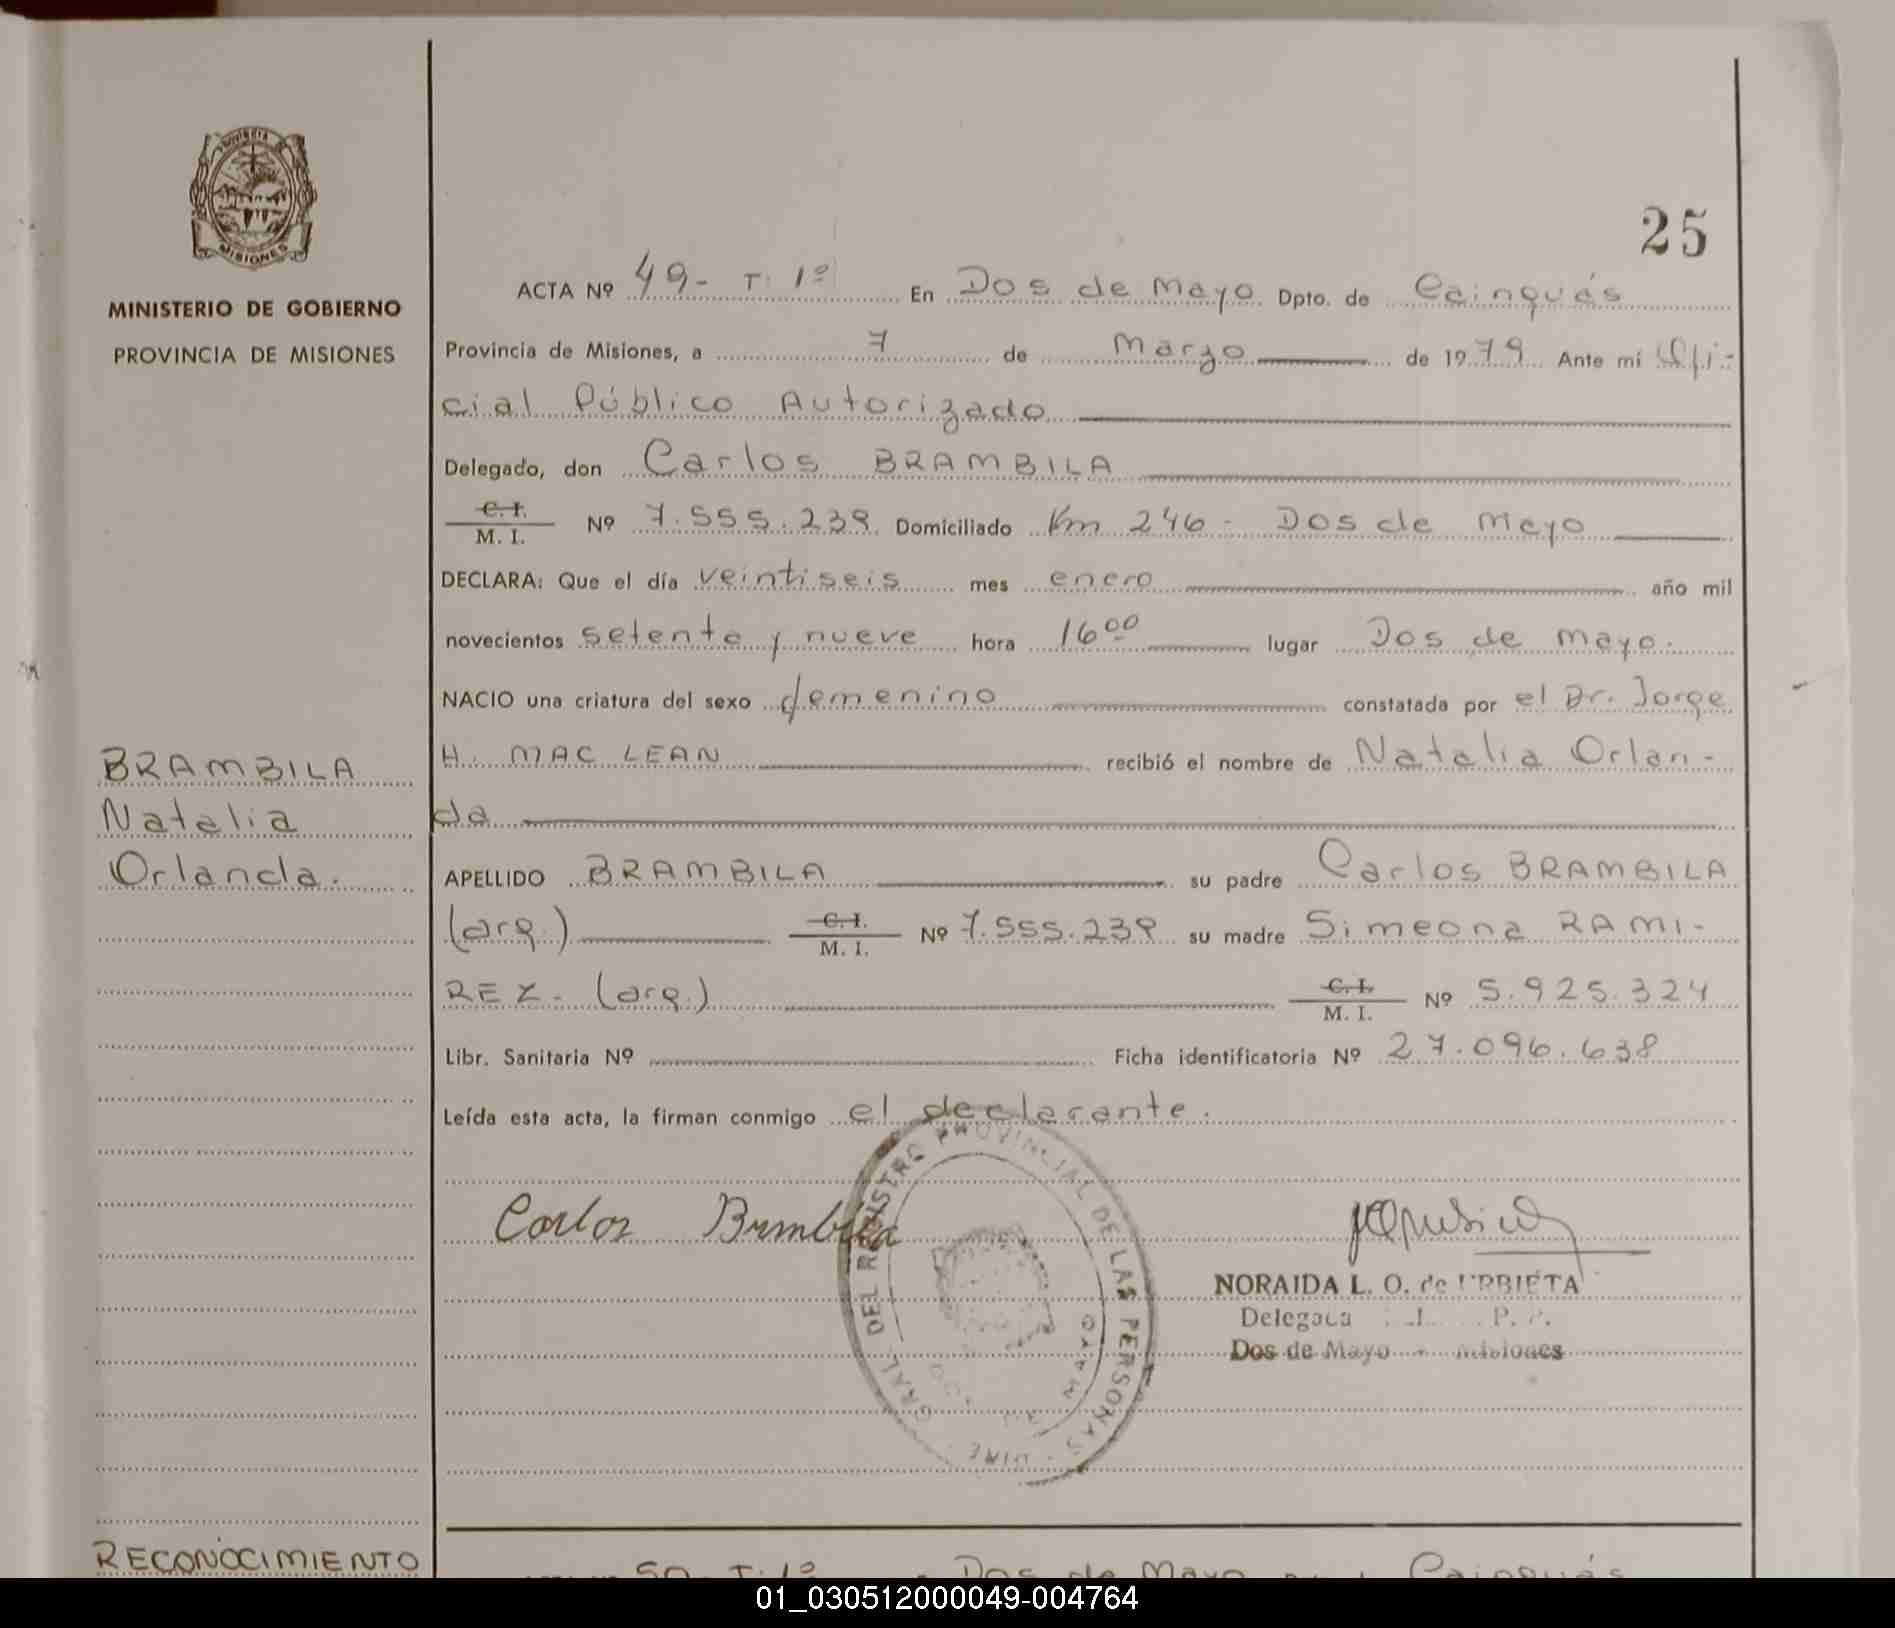 25
PROVINCIA
MISIONES
MINISTERIO DE GOBIERNO
PROVINCIA DE MISIONES
ACTA Nº 49- T. 1º En Dos de Mayo Dpto. de Cainguás
Provincia de Misiones, a 7 de Marzo de 1979 Ante mí Ofi-
cial Público Autorizado
Delegado, don Carlos BRAMBILA
C. I.
M. I. Nº 7.555.239 Domiciliado Km 246 - Dos de Mayo
DECLARA: Que el día veintiseis mes enero año mil
novecientos setenta y nueve hora 16ºº lugar Dos de Mayo.
NACIO una criatura del sexo femenino constatada por el Dr. Jorge
H. MAC LEAN recibió el nombre de Natalia Orlan-
da
BRAMBILA
Natalia
Orlanda.
APELLIDO BRAMBILA su padre Carlos BRAMBILA
(arg.) C. I. M. I. Nº 7.555.239 su madre Simeona RAMI-
REZ - (arg.) C. I. M. I. Nº 5.925.324
Libr. Sanitaria Nº Ficha identificatoria Nº 27.096.638
Leída esta acta, la firman conmigo el declarante.
Carlos Brambila
GRAL. DEL REGISTRO PROVINCIAL DE LAS PERSONAS
MAYO
NORAIDA L. O. de URBIETA
Delegada P. P.
Dos de Mayo - Misiones
RECONOCIMIENTO
50 - T. 1º Dos de Mayo Cainguás
01_030512000049-004764